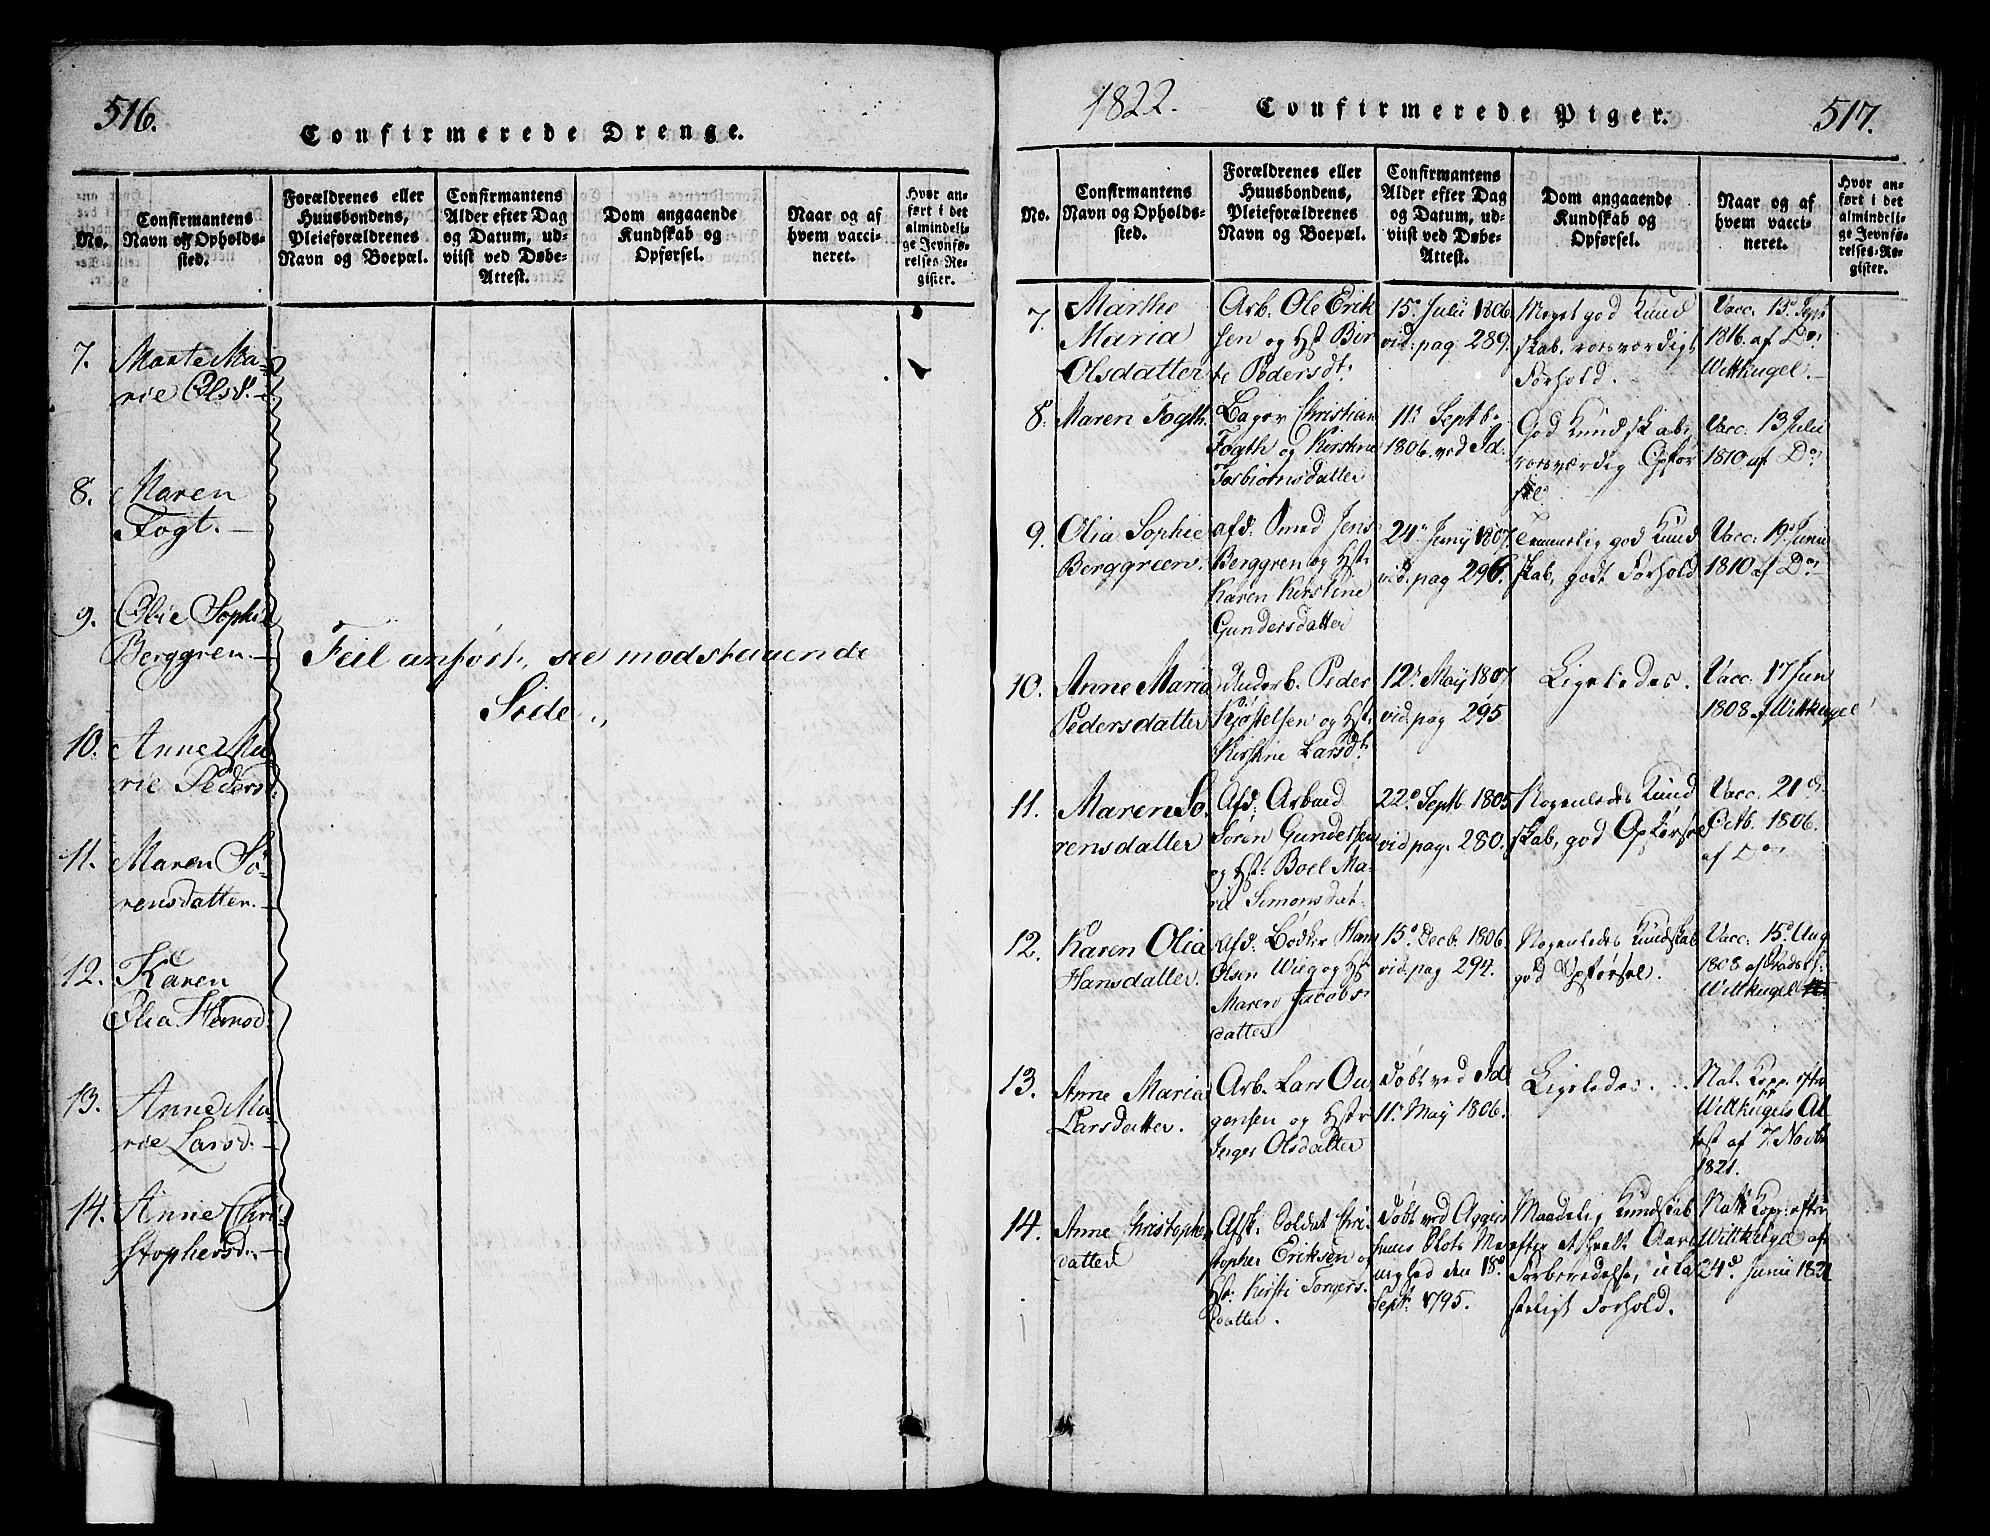 516.
Confirmerede Drenge.
No.
Confirmantens
Navn og Opholds-
sted.
Forældrenes eller
Huusbondens,
Pleieforældrenes
Navn og Boepæl.
Confirmantens
Alder efter Dag
og Datum, ud-
viist ved Døbe-
Attest.
Dom angaaende
Kundskab og
Opførsel.
Naar og af
hvem vacci-
neret.
Hvor an-
ført i det
almindeli-
ge Jevnfø-
relses-Re-
gister.
7. Marte Ma-
rie Olsd. -
8. Maren
Fogt. -
9. Olie Sophie
Berggren. -
Feil anført, see modstaaende
Side.
10. Anne Ma-
rie Pedersd:
11. Maren Sö-
rensdatter. -
12. Karen
Olia Hansd:
13. Anne Ma-
rie Larsd. -
14. Anne Chri-
stophersd. -
1822.
Confirmerede Piger.
517.
No.
Confirmantens
Navn og Opholds-
sted.
Forældrenes eller
Huusbondens,
Pleieforældrenes
Navn og Boepæl.
Confirmantens
Alder efter Dag
og Datum, ud-
viist ved Døbe-
Attest.
Dom angaaende
Kundskab og
Opførsel.
Naar og af
hvem vacci-
neret.
Hvor an-
ført i det
almindeli-
ge Jevnfø-
relses-Re-
gister.
7. Marthe
Maria
Olsdatter
Arb. Ole Erik
sen og Hst Bir
te Pedersdt:
15. Julii 1806
vid. pag 289.
Meget god Kund
skab, roesværdigt
Forhold.
Vacc. 15 Sept
1816. af Do
Wittkugel. -
8. Maren Fogth.
Bager Christian
Fogth og Kirstine
Torbiörnsdatter
11. Septb.
1806. ved Id.
God Kundskab,
roesværdig Opfør
sel
Vacc: 13 Julii
1810 af Do
9. Olia Sophie
Berggreen.
afd: Smed Jens
Berggren og Hst:
Karen Kirstine
Gundersdatter
24. Junij 1807.
vid. pag 296.
Temmelig god Kund
skab, godt Forhold
Vacc: 19. Junii
1810 af Do
10. Anne Maria
Pedersdatter
Peder
Kjøstelsen og Hst:
Kirstine Larsdt.
12. Maij 1807
vid. pag 295
Ligeledes.
Vacc: 17 Jun
1808 af Wittkugel
11. Maren Sö
rensdatter
Afd: Arbmd
Sören Gundersen
og Hst: Boel Ma-
rie Simonsdat:
22. Septb 1805
vid pag. 280.
Nogenledes Kund
skab, god Opførsel
Vacc. 21 d.
Octb. 1806.
af Do
12. Karen Olia
Hansdatter.
Afd: Bödker Hans
Olsen Wiig og Hst
Maren Jacobs-
datter
15. Decb. 1806.
vid. pag 294.
Nogenledes Kundskab
god Opførsel.
Vacc: 15. Aug
1808 af
Wittkugel
13. Anne Maria
Larsdatter.
Arb. Lars Ou
gensen og Hstr
Inger Olsdatter
döbt ved Id
11. May 1806.
Ligeledes.
Nat. Kopp. efter
Wittkugels At
test af 7. Novbr
1821.
14. Anne Christopher
datter
Afsk. Soldat Chri-
stopher Eriksen og
Hst: Kirsti Torgers
datter.
Döbt ved Agger
huus Slots Me
nighed den 18.
Septr. 1795.
Maadelig Kundskab
efter et heelt Aars
Forberedelse, ula
steligt Forhold.
Natl. Kopp. efter
Wittkugel af
24d. Junii 1821